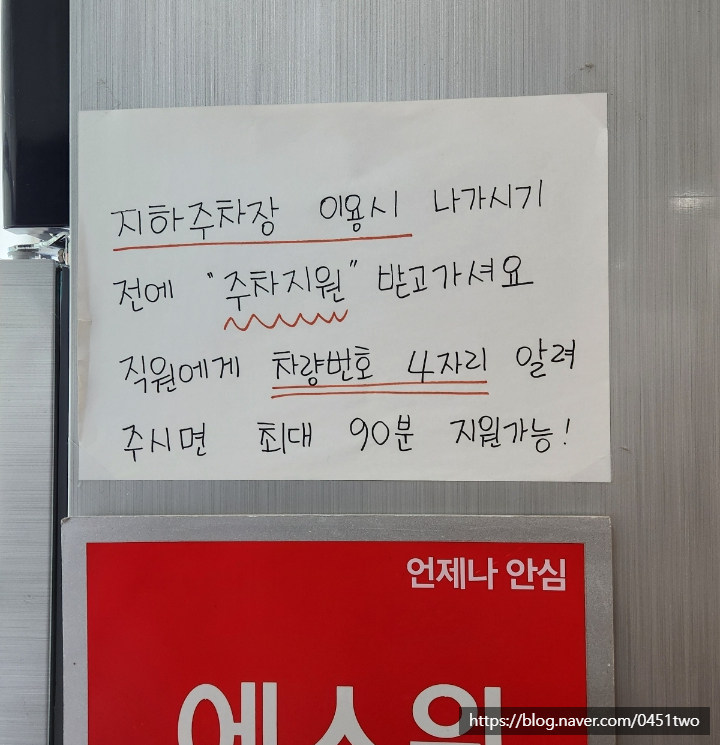 지하주차장 이용시 나가시기
전에 "주차지원" 받고가셔요
직원에게 차량번호 4자리 알려
주시면 최대 90분 지원가능!
언제나 안심
에스원
https://blog.naver.com/0451two